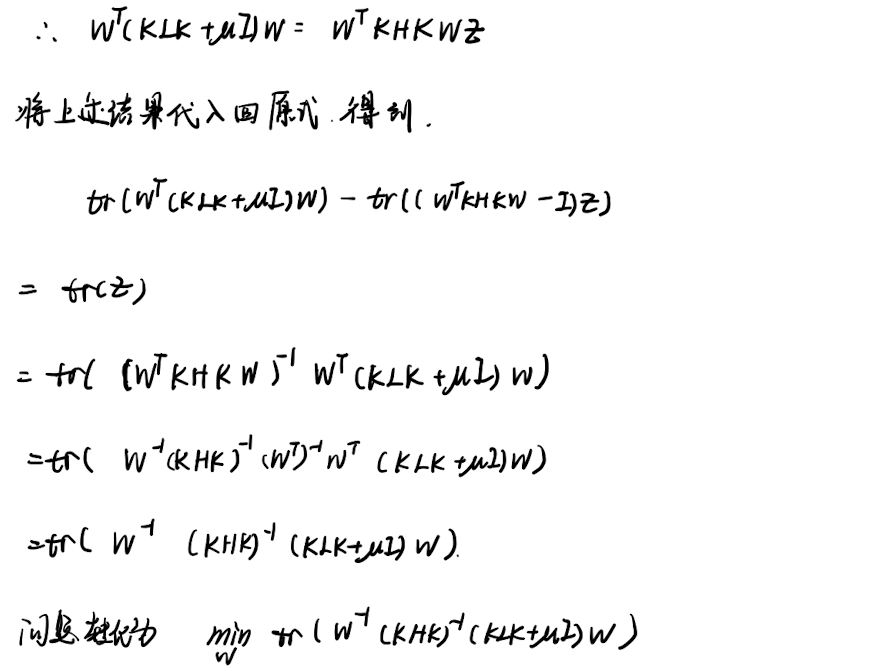 ∴ Wᵀ(KLK+μI)W = WᵀKHKWZ
将上述结果代入回原式.得到.
tr(Wᵀ(KLK+μI)W) - tr((WᵀKHKW-I)Z)
= tr(Z)
= tr( (WᵀKHKW)⁻¹ Wᵀ(KLK+μI)W)
=tr( W⁻¹(KHK)⁻¹(Wᵀ)⁻¹Wᵀ (KLK+μI)W)
=tr( W⁻¹ (KHK)⁻¹ (KLK+μI) W).
问题转化为 min_W tr( W⁻¹ (KHK)⁻¹(KLK+μI)W )